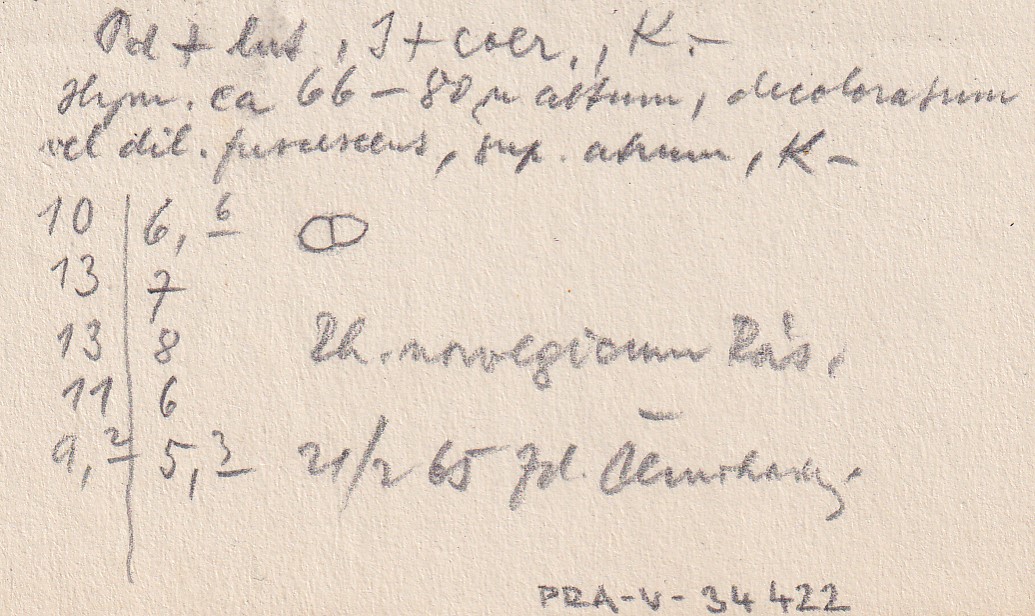 Pd + lut, J + coer., K.-
Hym. ca 66-80 µ altum, decoloratum
vel dil. fuscescens, sup. atrum, K-
10 | 6,6
13 | 7
13 | 8
Rh. norvegicum Räs.
11 | 6
9,2 | 5,3
21/2 65 Zd. Černohorský
PRA-V-34422